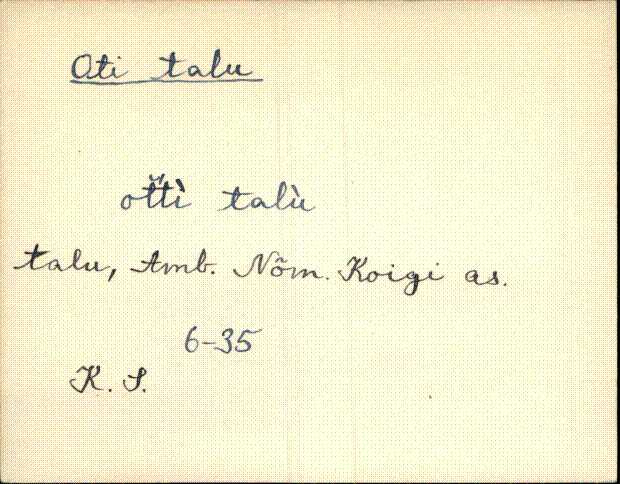 Oti talu
ot̆t̆ì talù
talu, Amb. Nõm. Koigi as.
6-35
K. S.